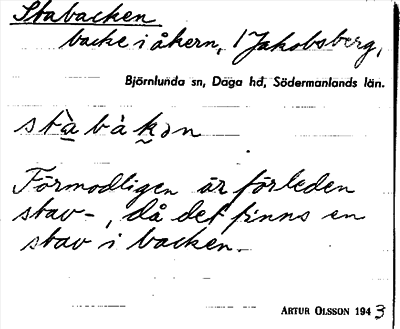 Stabacken
backe i åkern, i Jakobsberg,
Björnlunda sn, Daga hd, Södermanlands län.
stàbàkən
Förmodligen är förleden
stav-, då det finns en
stav i backen.
ARTUR OLSSON 1943